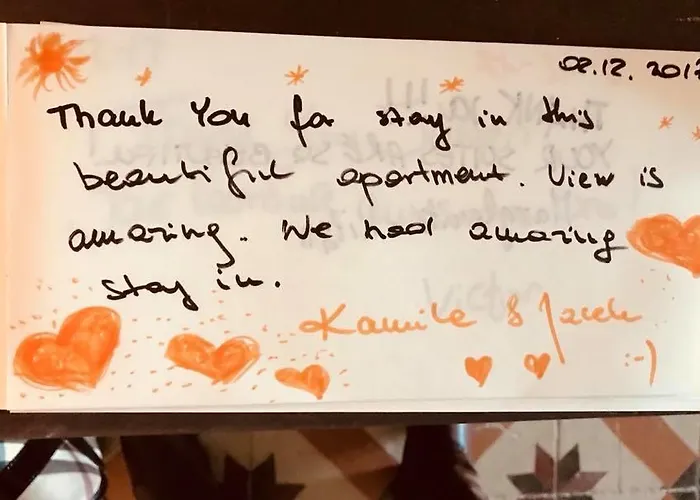 02.12. 2017
Thank You for stay in this
beautiful apartment. View is
amazing. We had amazing
stay in.
Kamila & Jacek
:-)